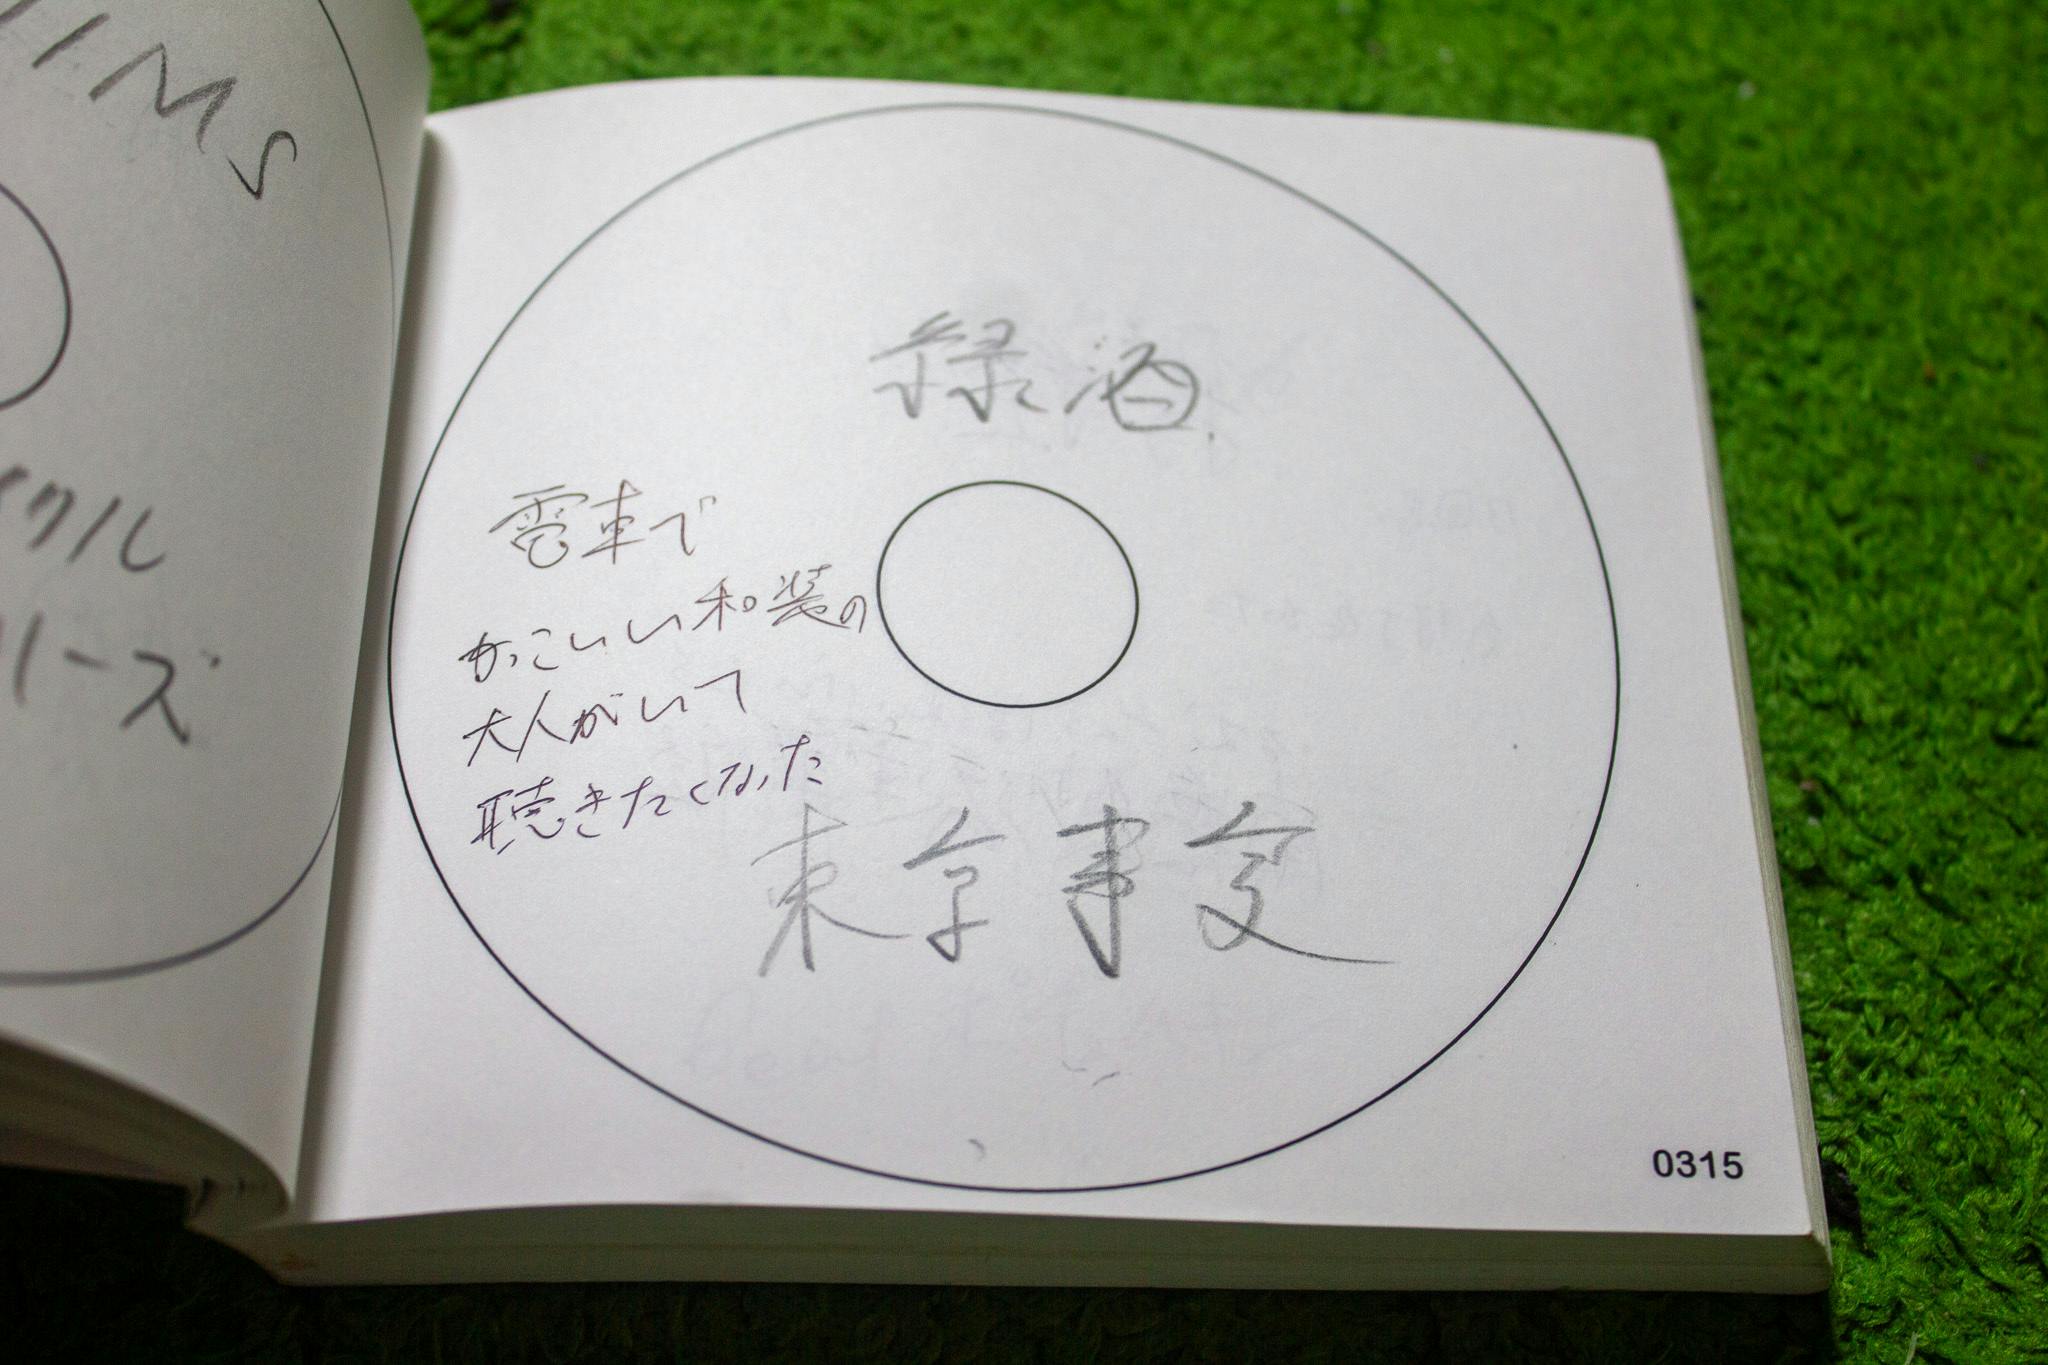 IMS
イクル
リーズ
緑酒
電車で
かっこいい和装の
大人がいて
聴きたくなった
東京事変
0315